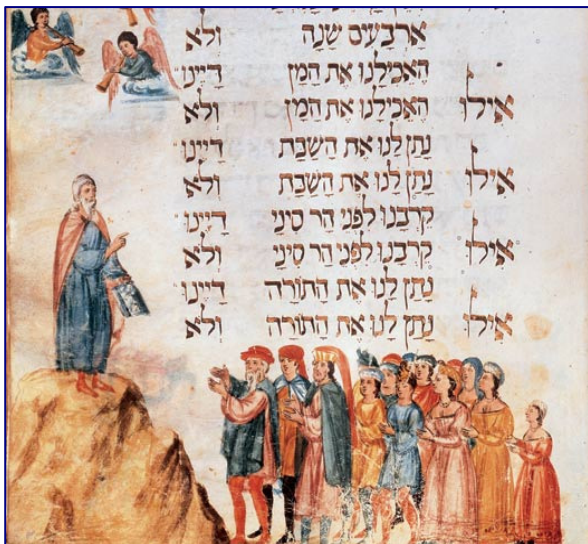 אַרְבָּעִים שָׁנָה וְלֹא
הֶאֱכִילָנוּ אֶת הַמָּן דַּיֵּינוּ
אִילּוּ הֶאֱכִילָנוּ אֶת הַמָּן וְלֹא
נָתַן לָנוּ אֶת הַשַּׁבָּת דַּיֵּינוּ
אִילּוּ נָתַן לָנוּ אֶת הַשַּׁבָּת וְלֹא
קֵרְבָנוּ לִפְנֵי הַר סִינַי דַּיֵּינוּ
אִילּוּ קֵרְבָנוּ לִפְנֵי הַר סִינַי וְלֹא
נָתַן לָנוּ אֶת הַתּוֹרָה דַּיֵּינוּ
אִילּוּ נָתַן לָנוּ אֶת הַתּוֹרָה וְלֹא